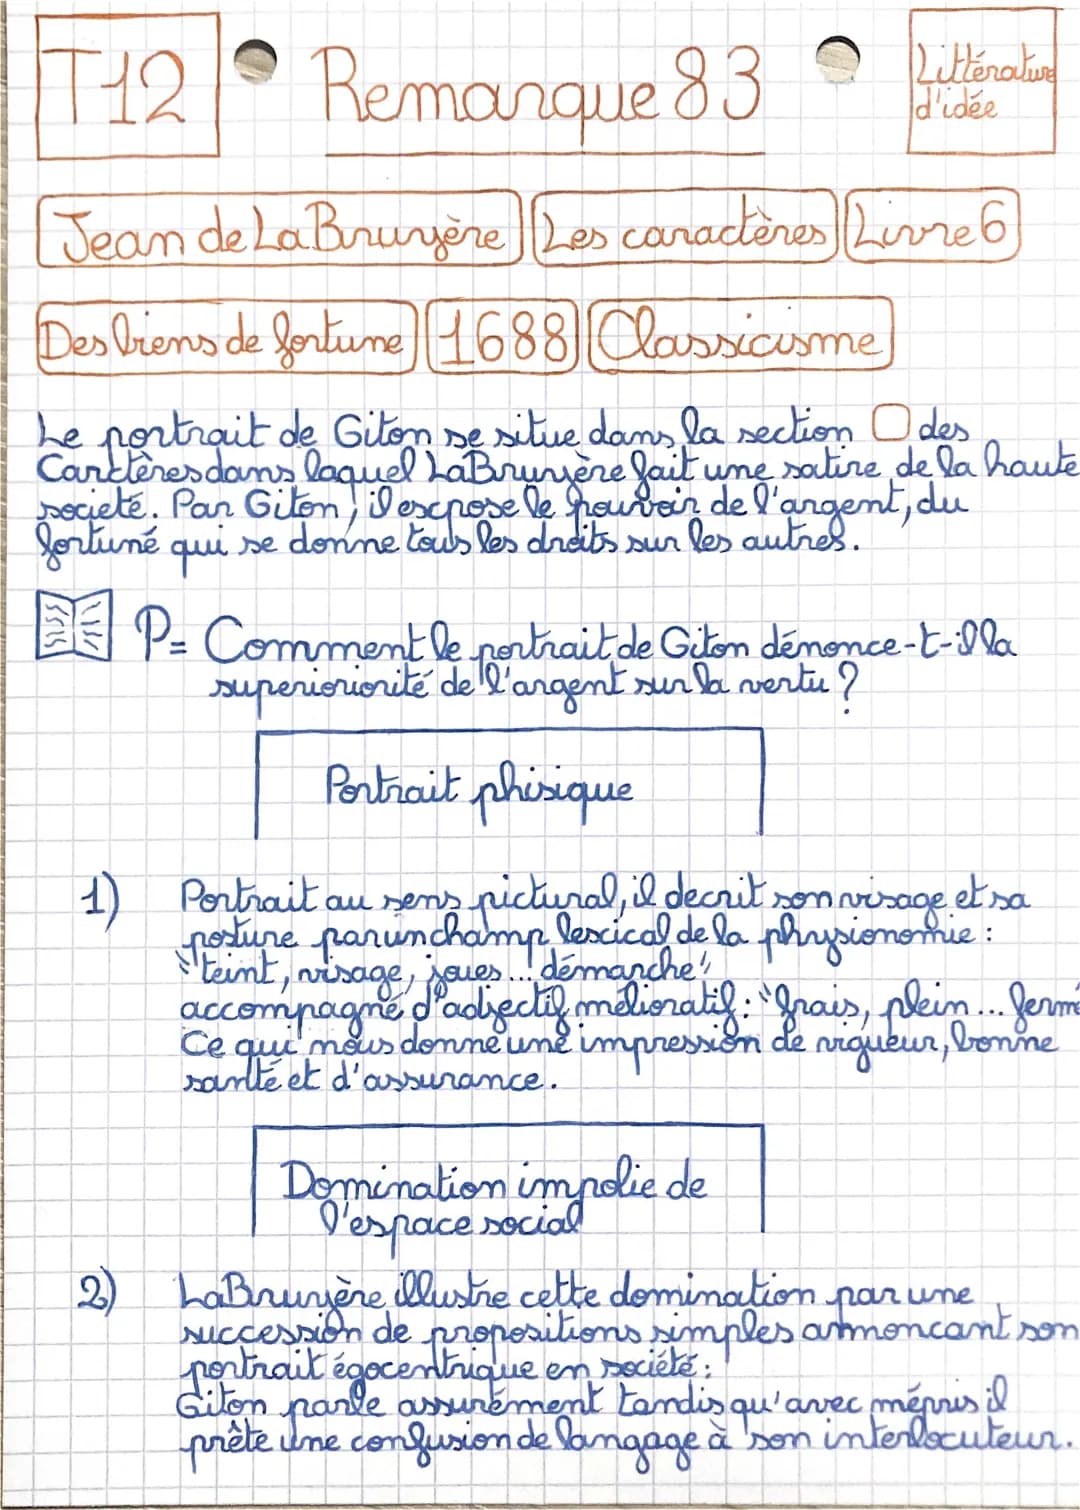 T12
Remarque 83
Littérature
d'idée
Jean de La Bruyère
Les caractères
Livre 6
Des biens de fortune
1688
Classicisme
Le portrait de Giton se situe dans la section des
Carctères dans laquel La Bruyère fait une satire de la haute
societé. Par Giton, il expose le pouvoir de l'argent, du
fortuné qui se donne tous les droits sur les autres.
P= Comment le portrait de Giton dénonce-t-il la
superioriorité de l'argent sur la vertu ?
Portrait phisique
1) Portrait au sens pictural, il decrit son visage et sa
posture par un champ lexical de la physionomie :
"teint, visage, joues... démarche"
accompagné d'adjectif mélioratif : "frais, plein... ferme
Ce qui nous donne une impression de vigueur, bonne
santé et d'assurance.
Domination impolie de
l'espace social
2) La Bruyère illustre cette domination par une
succession de propositions simples annoncant son
portrait égocentrique en société :
Giton parle assurément tandis qu'avec mépris il
prête une confusion de langage à son interlocuteur.